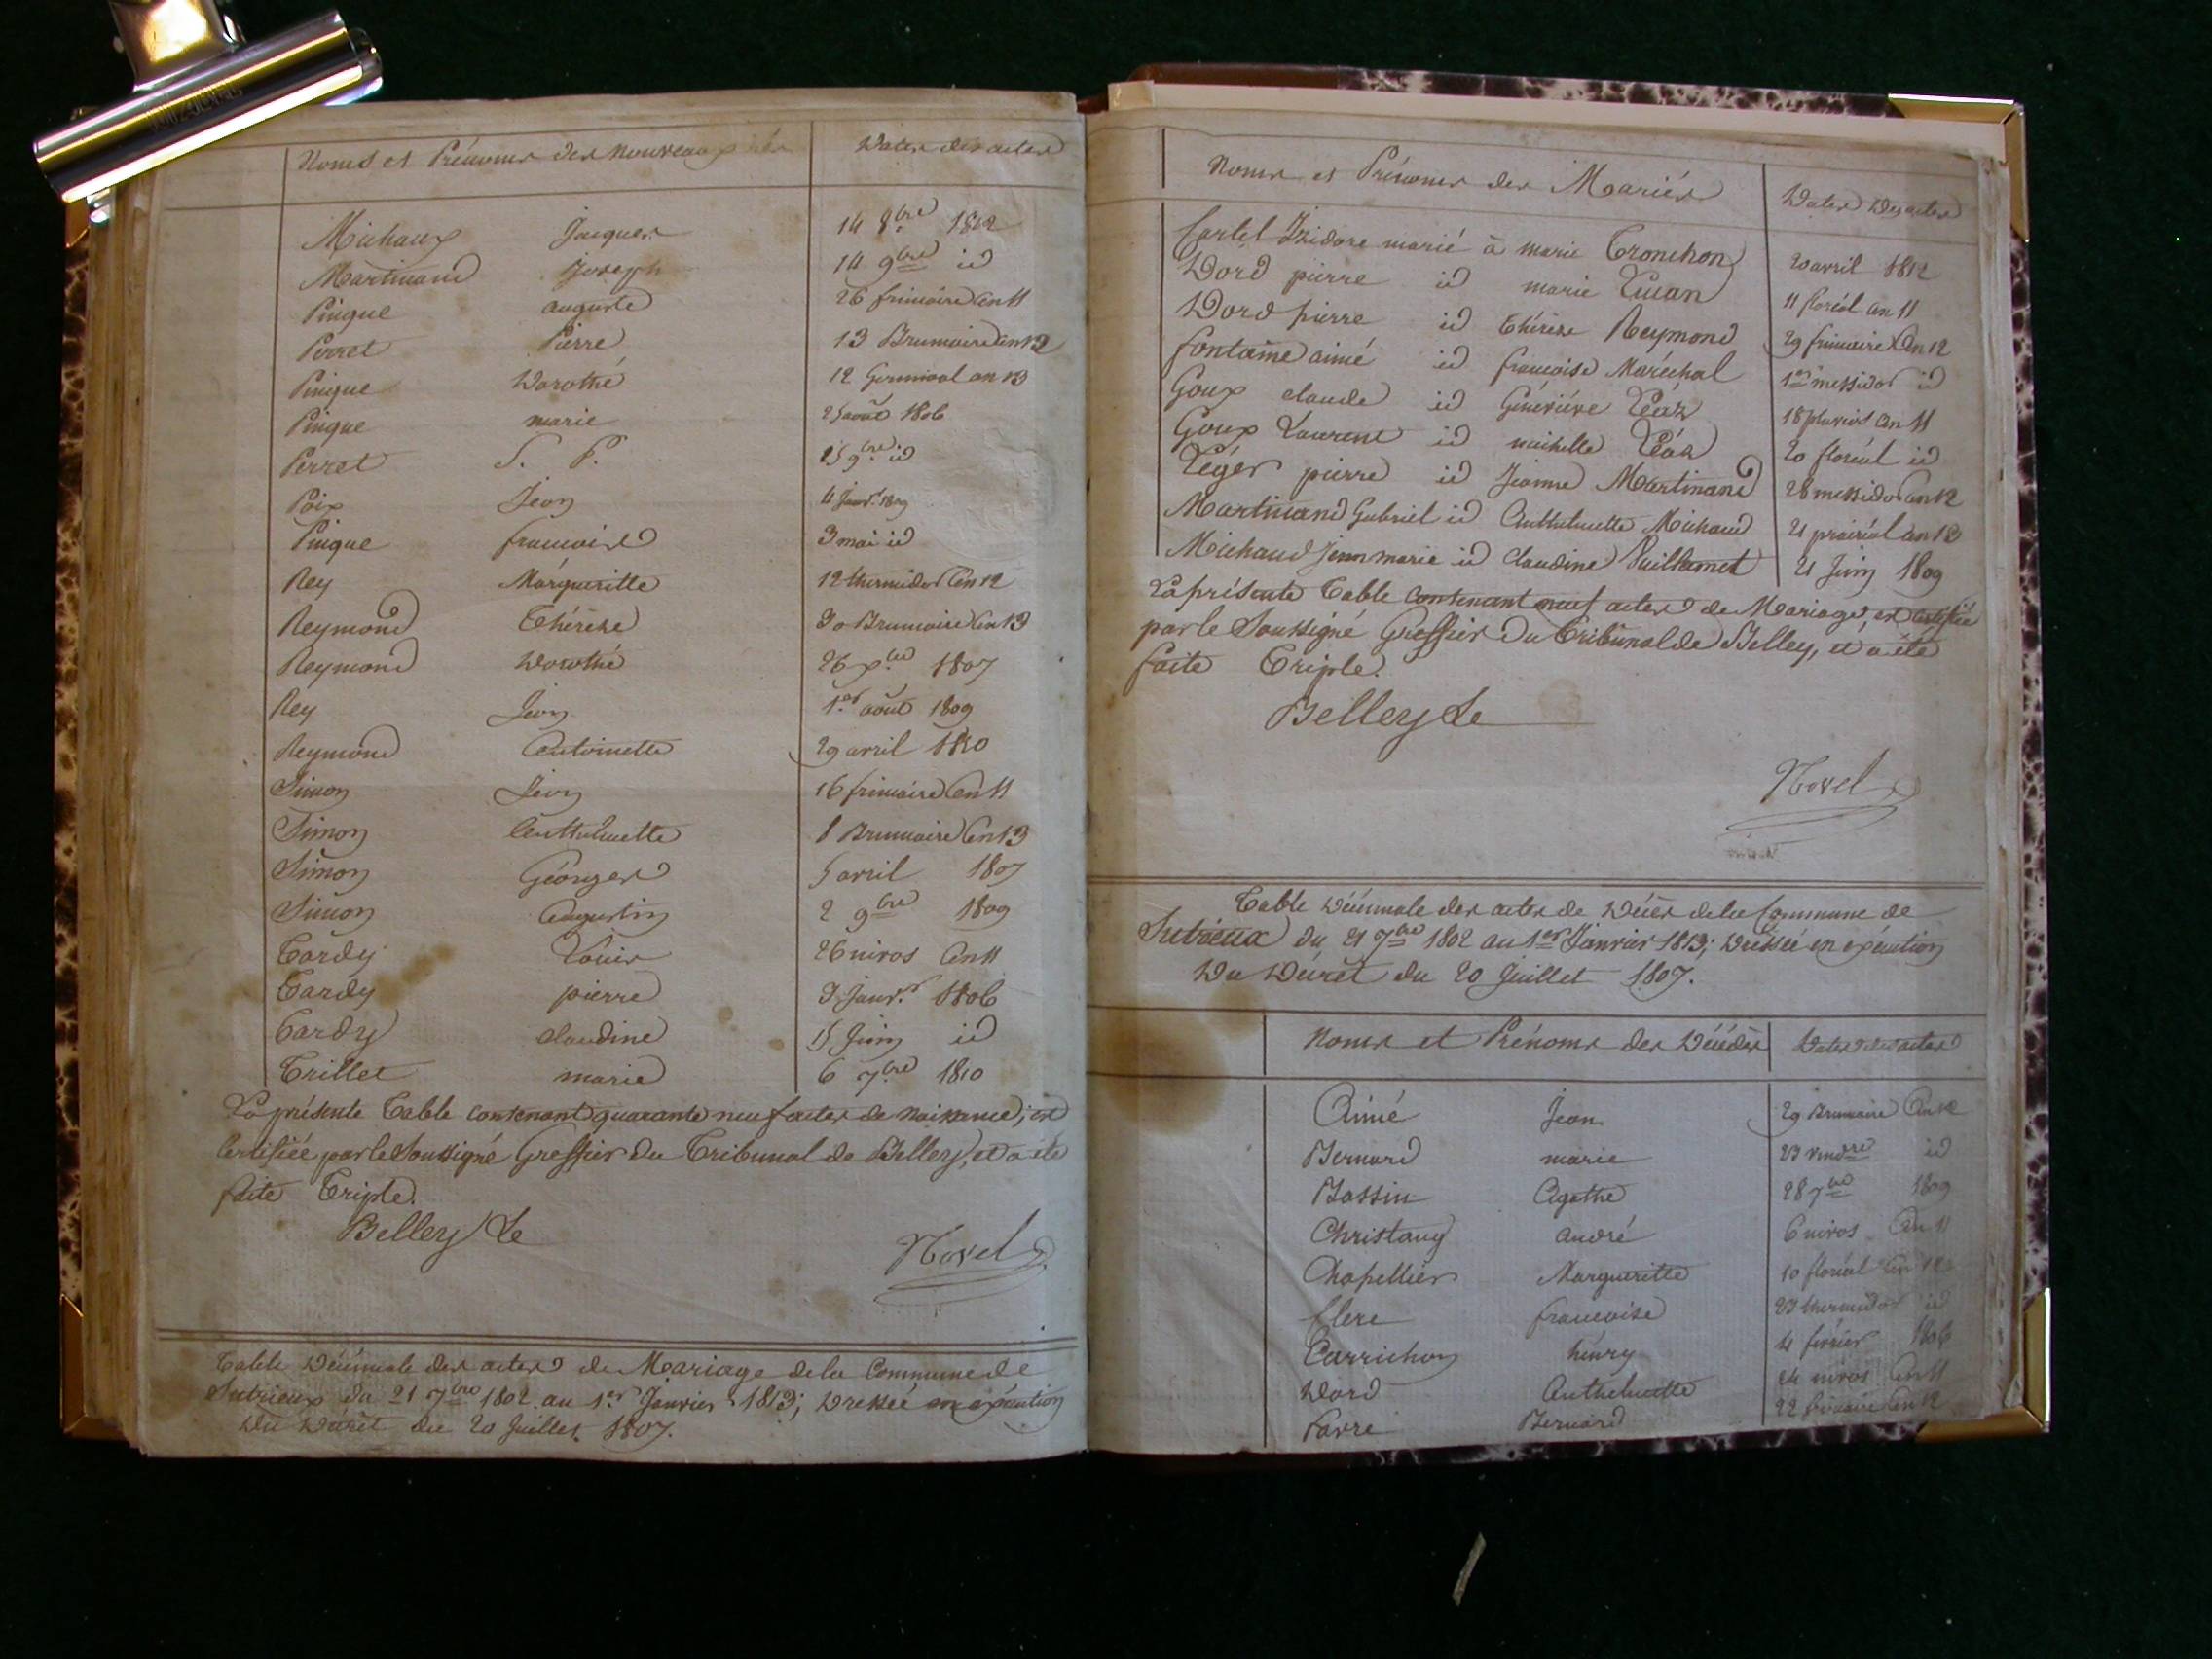 Noms et Prénoms des nouveaux nés Dates des actes
Michaux Jacques 14 8bre 1812
Martinand Joseph 14 9bre id
Pingue auguste 26 frimaire an 11
Perret Pierre 13 Brumaire an 12
Pingue Dorothé 12 Germinal an 13
Pingue marie 25 août 1806
Perret S. P. 15 9bre id
Poix Jean 4 Janr. 1809
Pingue francoise 3 mai id
Rey Margueritte 12 thermidor an 12
Reymond Thérèse 30 Brumaire an 13
Reymond Dorothé 26 xbre 1807
Rey Jean 1er août 1809
Reymond Antoinette 29 avril 1810
Simon Jean 16 frimaire an 11
Simon Anthelmette 8 Brumaire an 13
Simon Géorges 5 avril 1807
Simon Augustin 2 9bre 1809
Tardy Louis 26 nivos an 11
Tardy pierre 9 Janr. 1806
Tardy claudine 15 Juin id
Trillet marie 6 7bre 1810
La présente Table contenant quarante neuf actes de naissance, est
Certifiée par le Soussigné Greffier du Tribunal de Belley, et a été
faite Triple.
Belley Le
Novel
Table Décénnale des actes de Mariage de la Commune de
Sutrieux du 21 7bre 1802 au 1er Janvier 1813; Dressée en exécution
Du Décret du 20 Juillet 1807.
Noms et Prénoms des Mariés Dates Des actes
Cartel Isidore marié à marie Tronchon 20 avril 1812
Dord pierre id marie 11 floréal an 11
Dord pierre id Thérèse Reymond 29 frimaire an 12
fontaine aimé id francoise Maréchal 1er messidor id
Goux claude id Généviéve Léáz 18 pluvios an 11
Goux Laurent id michelle Léáz 20 floréal id
Léger pierre id Jeanne Martinand 28 messidor an 12
Martinand Gabriel id Anthelmette Michaud 21 prairial an 13
Michaud Jean marie id claudine 21 Juin 1809
La présente Table contenant neuf actes de Mariage, est certifiée
par le Soussigné Greffier Du Tribunal de Belley, et a été
faite Triple.
Belley Le
Novel
Table Décénnale des actes de Décès de la Commune de
Sutrieux du 21 7bre 1802 au 1er Janvier 1813; Dressée en exécution
Du Décret du 20 Juillet 1807.
Noms et Prénoms des Décédés Dates des actes
Aimé Jean 29 Brumaire an 12
Bernard marie 23 vendre id
Bassin Agathe 28 7bre 1809
Christany andré 6 nivos an 11
Chapellier Margueritte 10 floréal an
Clerc francoise 23 thermidor id
Carrichon hénry 4 février 1806
Dord Anthelmette 24 nivos an 11
Favre Bernard 22 frimaire an 12